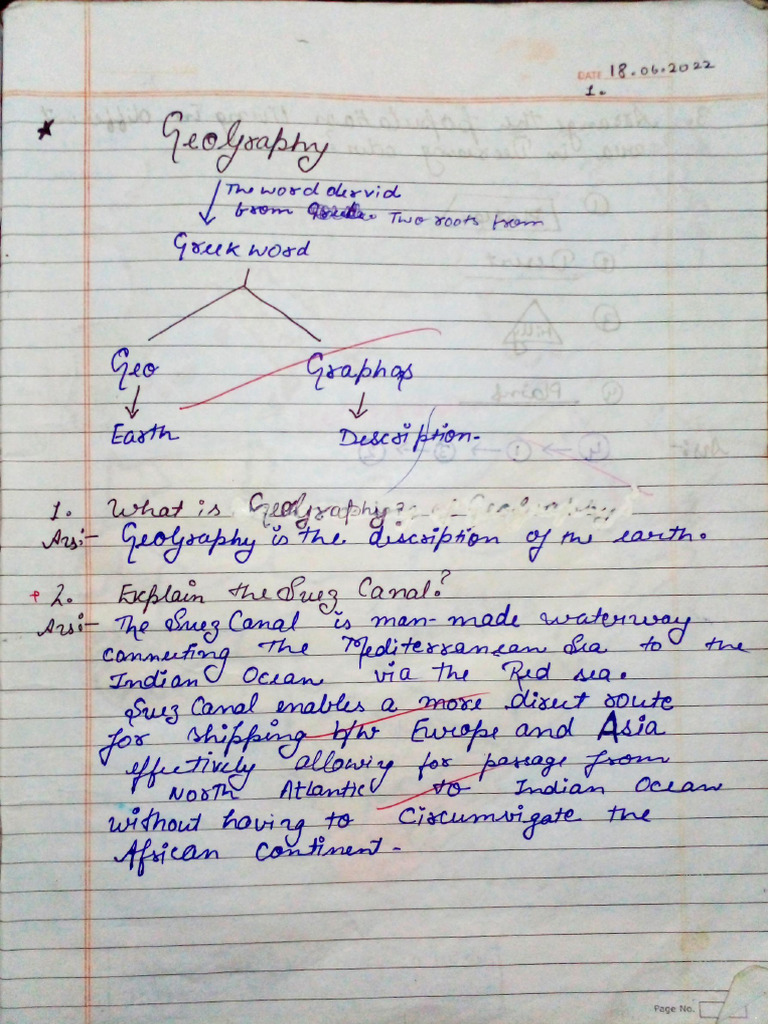 DATE 18.06.2022
1.
* Geography
The word dervid
from Two roots from
Greek word
Geo Graphos
Earth Description-
1. What is Geography?
Ans:- Geography is the discription of the earth.
+ 2. Explain the Suez Canal?
Ans:- The Suez Canal is man-made waterway
connecting The Mediterranean Sea to the
Indian Ocean via the Red sea.
Suez Canal enables a more direct route
for shipping b/w Europe and Asia
effectively allowing for passage from
North Atlantic to Indian Ocean
without having to Circumvigate the
African Continent-
Page No.